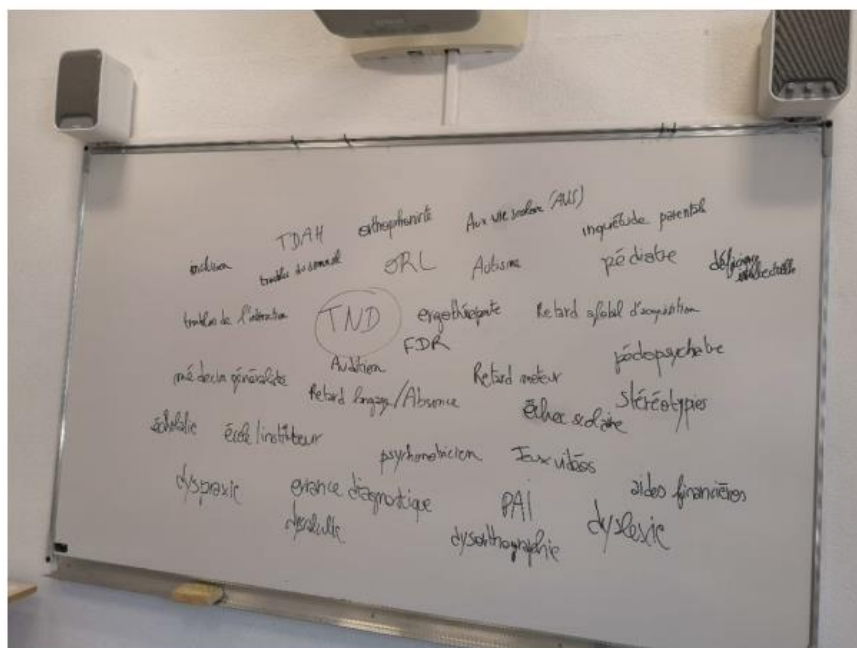 TDAH orthophoniste Aux vie scolaire (AVS) inquiétude parentale
inclusion troubles du sommeil ORL Autisme pédiatre déficience intellectuelle
troubles de l'interaction TND ergothérapeute Retard global d'acquisition
FDR
médecin généraliste Audition Retard moteur pédopsychatre
Retard langage/Absence échec scolaire stéréotypies
écholalie école/instituteur
psychomotricien Jeux vidéos
dyspraxie errance diagnostique PAI aides financières
dyscalculie dysorthographie dyslexie